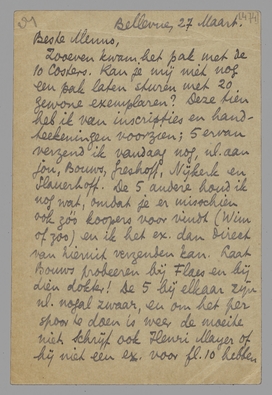 Bellevue, 27 Maart.
Beste Menno,
Zooeven kwam het pak met de
10 Costers. Kan je mij niet nog
een pak laten sturen met 20
gewone exemplaren? Deze tien
heb ik van inscripties en hand-
teekeningen voorzien; 5 ervan
verzend ik vandaag nog, nl. aan
jou, Bouws, Greshoff, Nijkerk en
Slauerhoff. De 5 andere houd ik
nog wat, omdat je er misschien
ook zóó koopers voor vindt (Wim
of zoo) en ik het ex. dan direct
van hieruit verzenden kan. Laat
Bouws probeeren bij Flaes en bij
dien dokter! De 5 bij elkaar zijn
nl. nogal zwaar, en om het per
spoor te doen is weer de moeite
niet. Schrijf ook Henri Mayer of
hij niet een ex. voor fl. 10 hebben